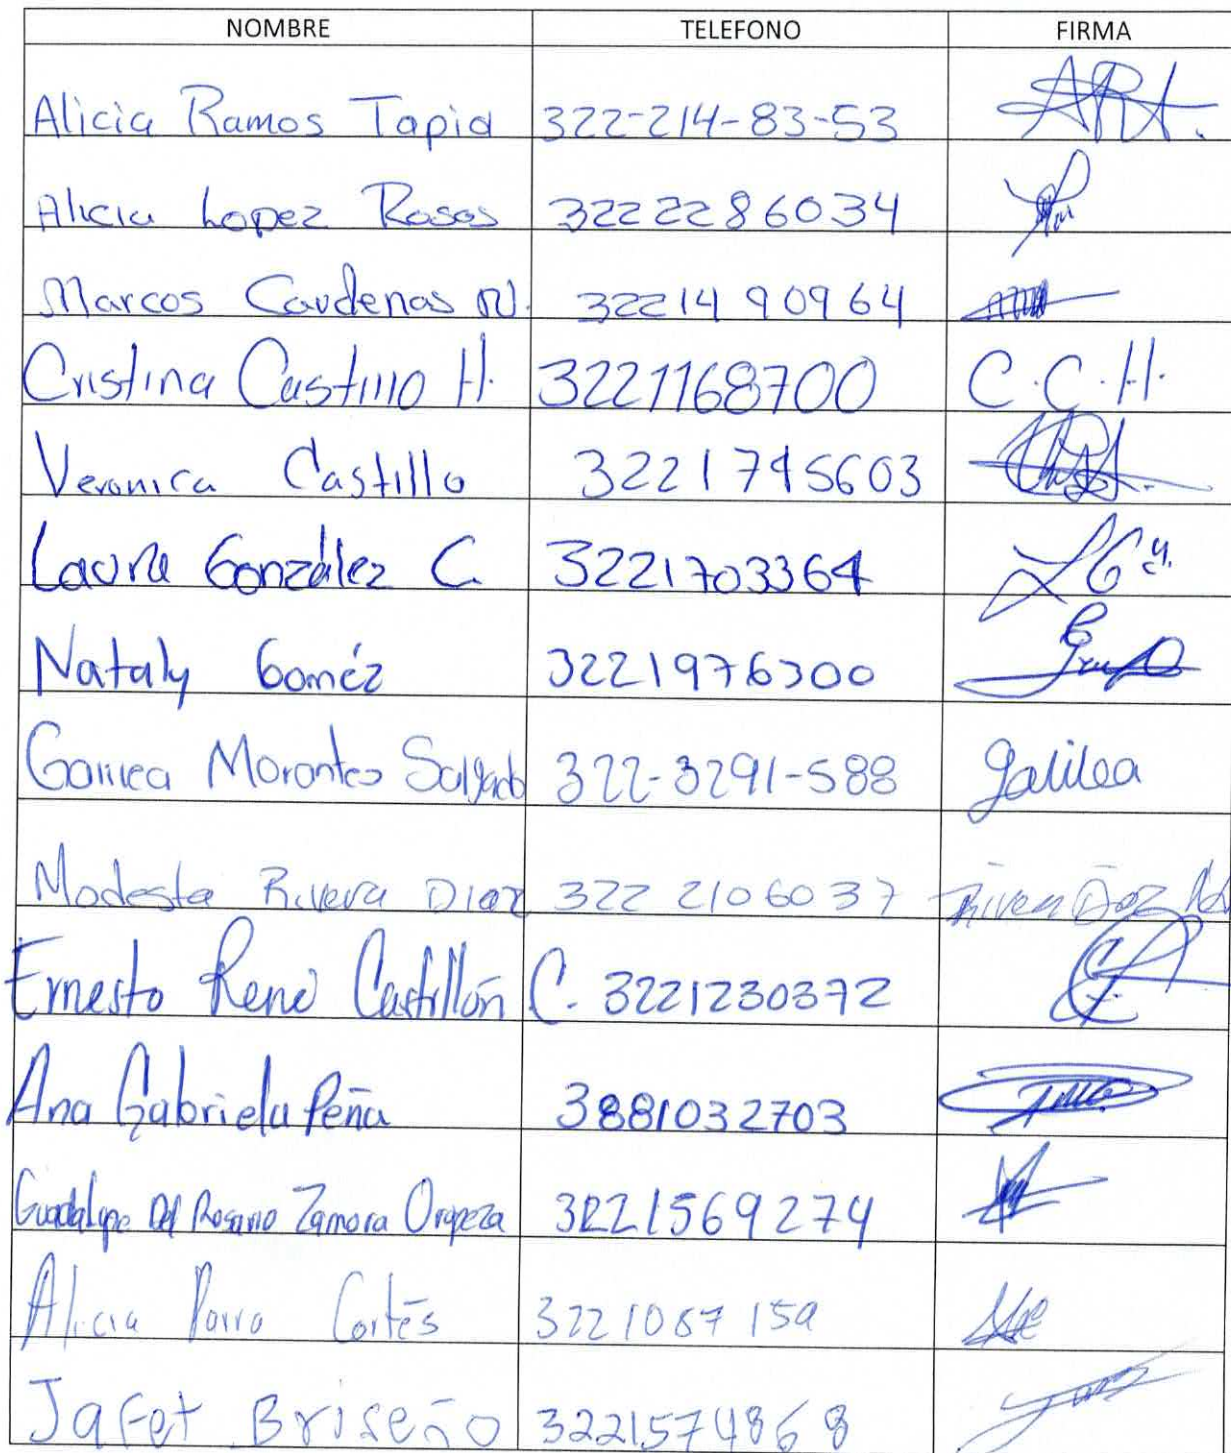 NOMBRE TELEFONO FIRMA
Alicia Ramos Tapia 322-214-83-53 ART.
Alicia Lopez Rosas 3222286034
Marcos Cardenas N. 3221490964
Cristina Castillo H. 3221168700 C.C.H.
Veronica Castillo 3221745603
Laura González C. 3221703364
Nataly Goméz 3221976300
Galilea Morontes Salgado 322-3291-588 galilea
Modesta Rivera Diaz 322 2106037 Rivera Diaz
Ernesto René Castillón C. 3221230372
Ana Gabriela Peña 3881032703
Guadalupe Del Rosario Zamora Oropeza 3221569274
Alicia Parra Cortés 3221067159
Jafet Briseño 3221574868